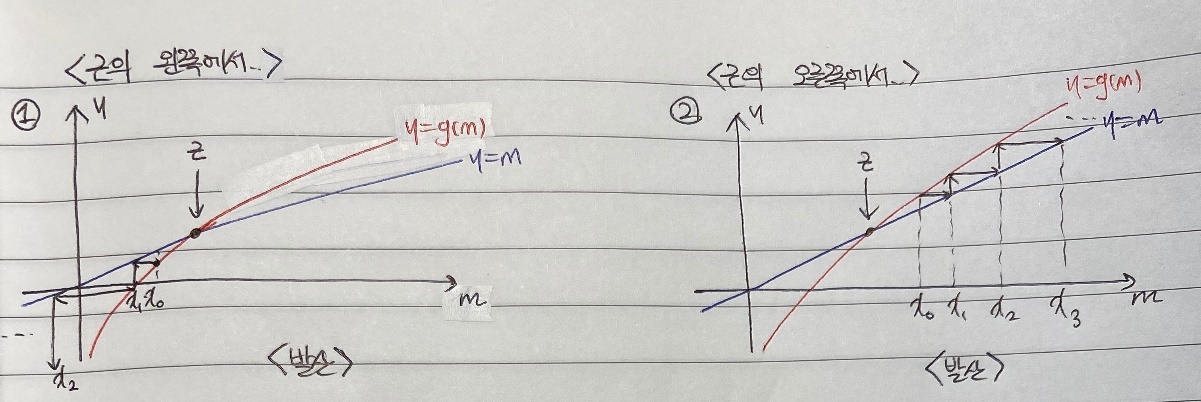 <근의 왼쪽에서..>
① y
y=g(x)
y=x
z
x₁ x₀
x
...
x₂
<발산>
<근의 오른쪽에서..>
② y
y=g(x)
... y=x
z
x₀ x₁ x₂ x₃
x
<발산>